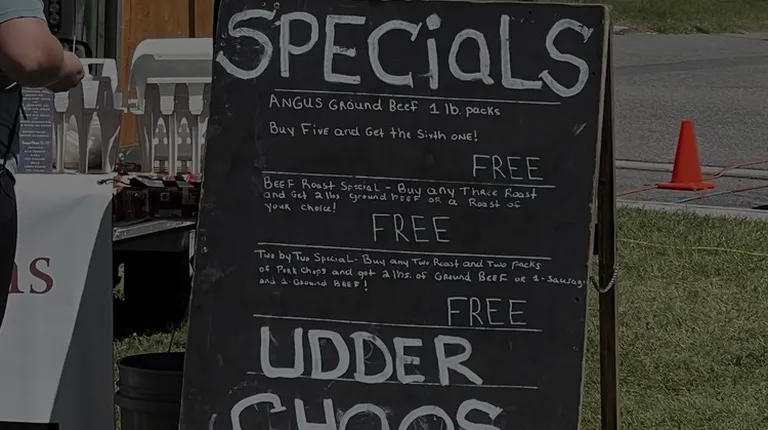 SPECiaLS
ANGUS Ground Beef 1 lb. packs
Buy Five and Get the Sixth one!
FREE
BEEF Roast Special - Buy any Three Roast
and Get 2 lbs. Ground BEEF or a Roast of
your choice!
FREE
Two by Two Special - Buy any Two Roast and Two packs
of Pork Chops and get 2 lbs. of Ground BEEF or 1-Sausage
and 1-Ground BEEF!
FREE
UDDER